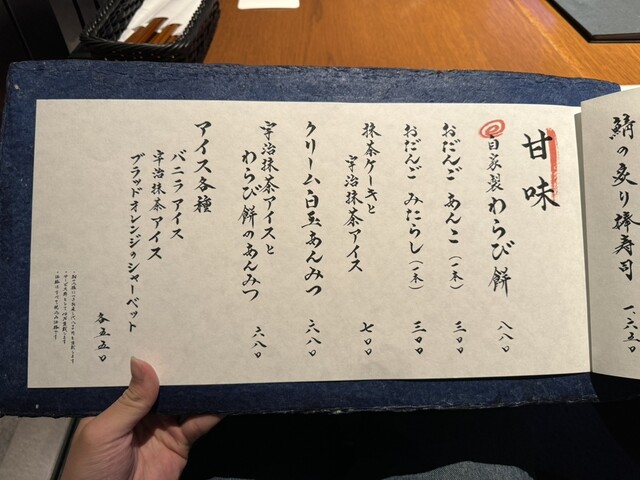 鯖の炙り棒寿司 一、六五〇
甘味
自家製わらび餅 八八〇
おだんご あんこ(一本) 三〇〇
おだんご みたらし(一本) 三〇〇
抹茶ケーキと
宇治抹茶アイス 七〇〇
クリーム白玉あんみつ 六八〇
宇治抹茶アイスと
わらび餅のあんみつ 六八〇
アイス各種
バニラアイス
宇治抹茶アイス
ブラッドオレンジのシャーベット
各五五〇